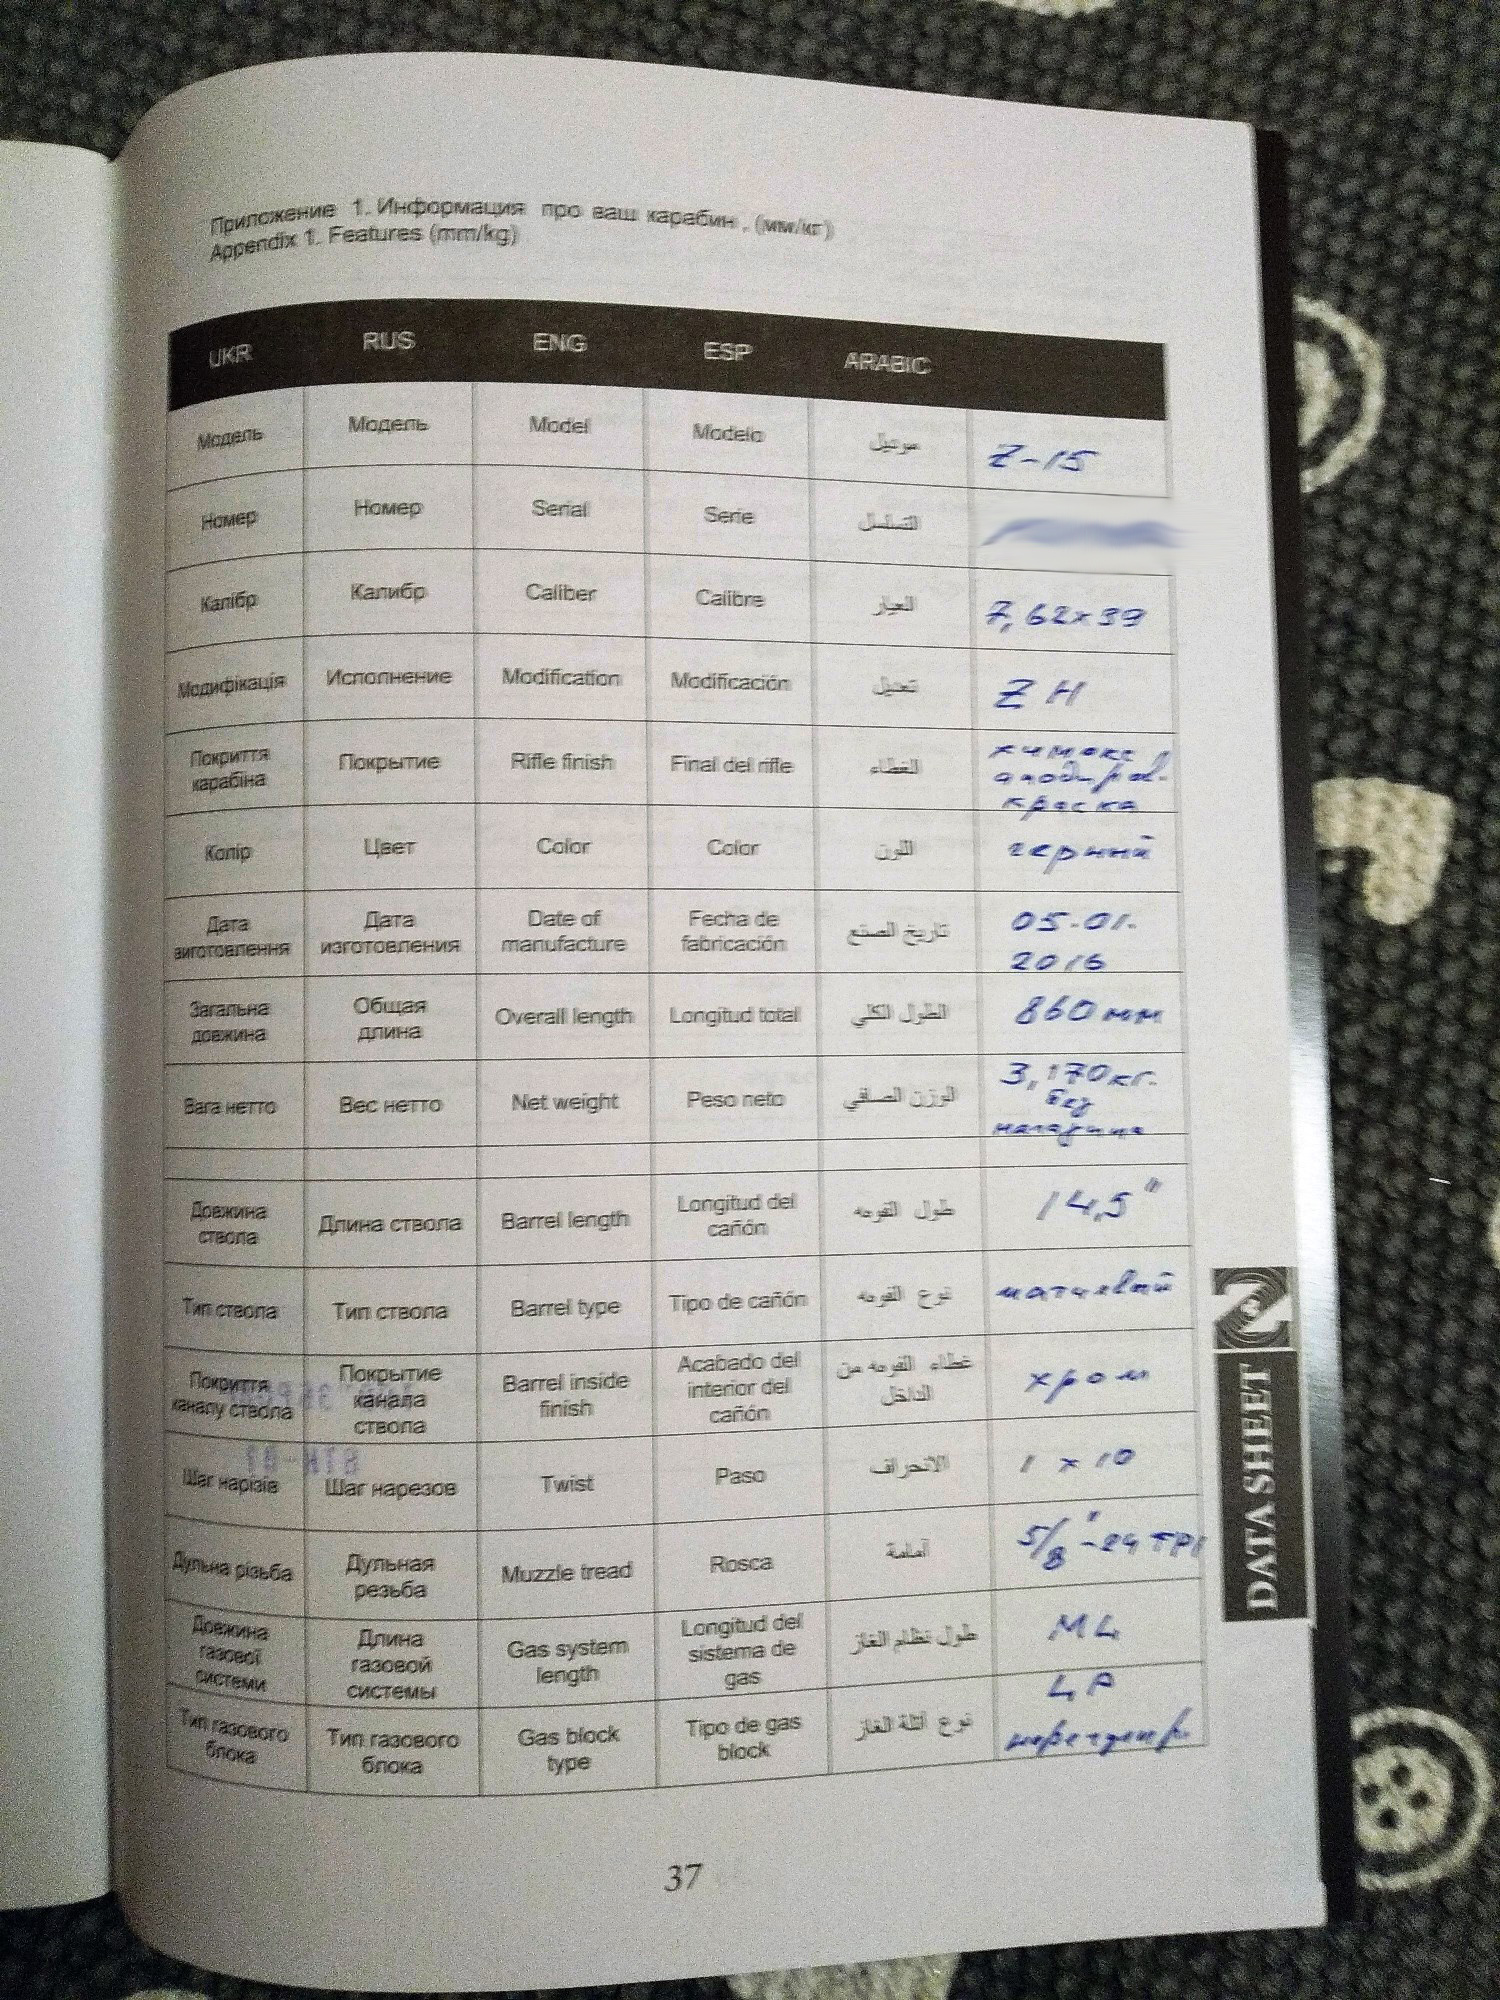 Приложение 1. Информация про ваш карабин , (мм/кг)
Appendix 1. Features (mm/kg)
UKR RUS ENG ESP ARABIC
Модель Модель Model Modelo موديل Z-15
Номер Номер Serial Serie التسلسل
Калібр Калибр Caliber Calibre العيار 7,62x39
Модифікація Исполнение Modification Modificación تعديل ZH
Покриття карабіна Покрытие Rifle finish Final del rifle الغطاء химокс,
краска
Колір Цвет Color Color اللون черный
Дата виготовлення Дата изготовления Date of manufacture Fecha de fabricación تاريخ الصنع 05-01.
2016
Загальна довжина Общая длина Overall length Longitud total الطول الكلي 860 мм
Вага нетто Вес нетто Net weight Peso neto الوزن الصافي 3,170 кг.
без
магазина
Довжина ствола Длина ствола Barrel length Longitud del cañón طول الفوهه 14,5"
Тип ствола Тип ствола Barrel type Tipo de cañón نوع الفوهه матчевый
Покриття каналу ствола Покрытие канала ствола Barrel inside finish Acabado del interior del cañón غطاء الفوهه من الداخل хром
Шаг нарізів Шаг нарезов Twist Paso الانحراف 1 x 10
Дульна різьба Дульная резьба Muzzle tread Rosca 5/8"-24 TPI
Довжина газової системи Длина газовой системы Gas system length Longitud del sistema de gas طول نظام الغاز ML
Тип газового блока Тип газового блока Gas block type Tipo de gas block نوع اتلة الغاز LP
DATA SHEET
37